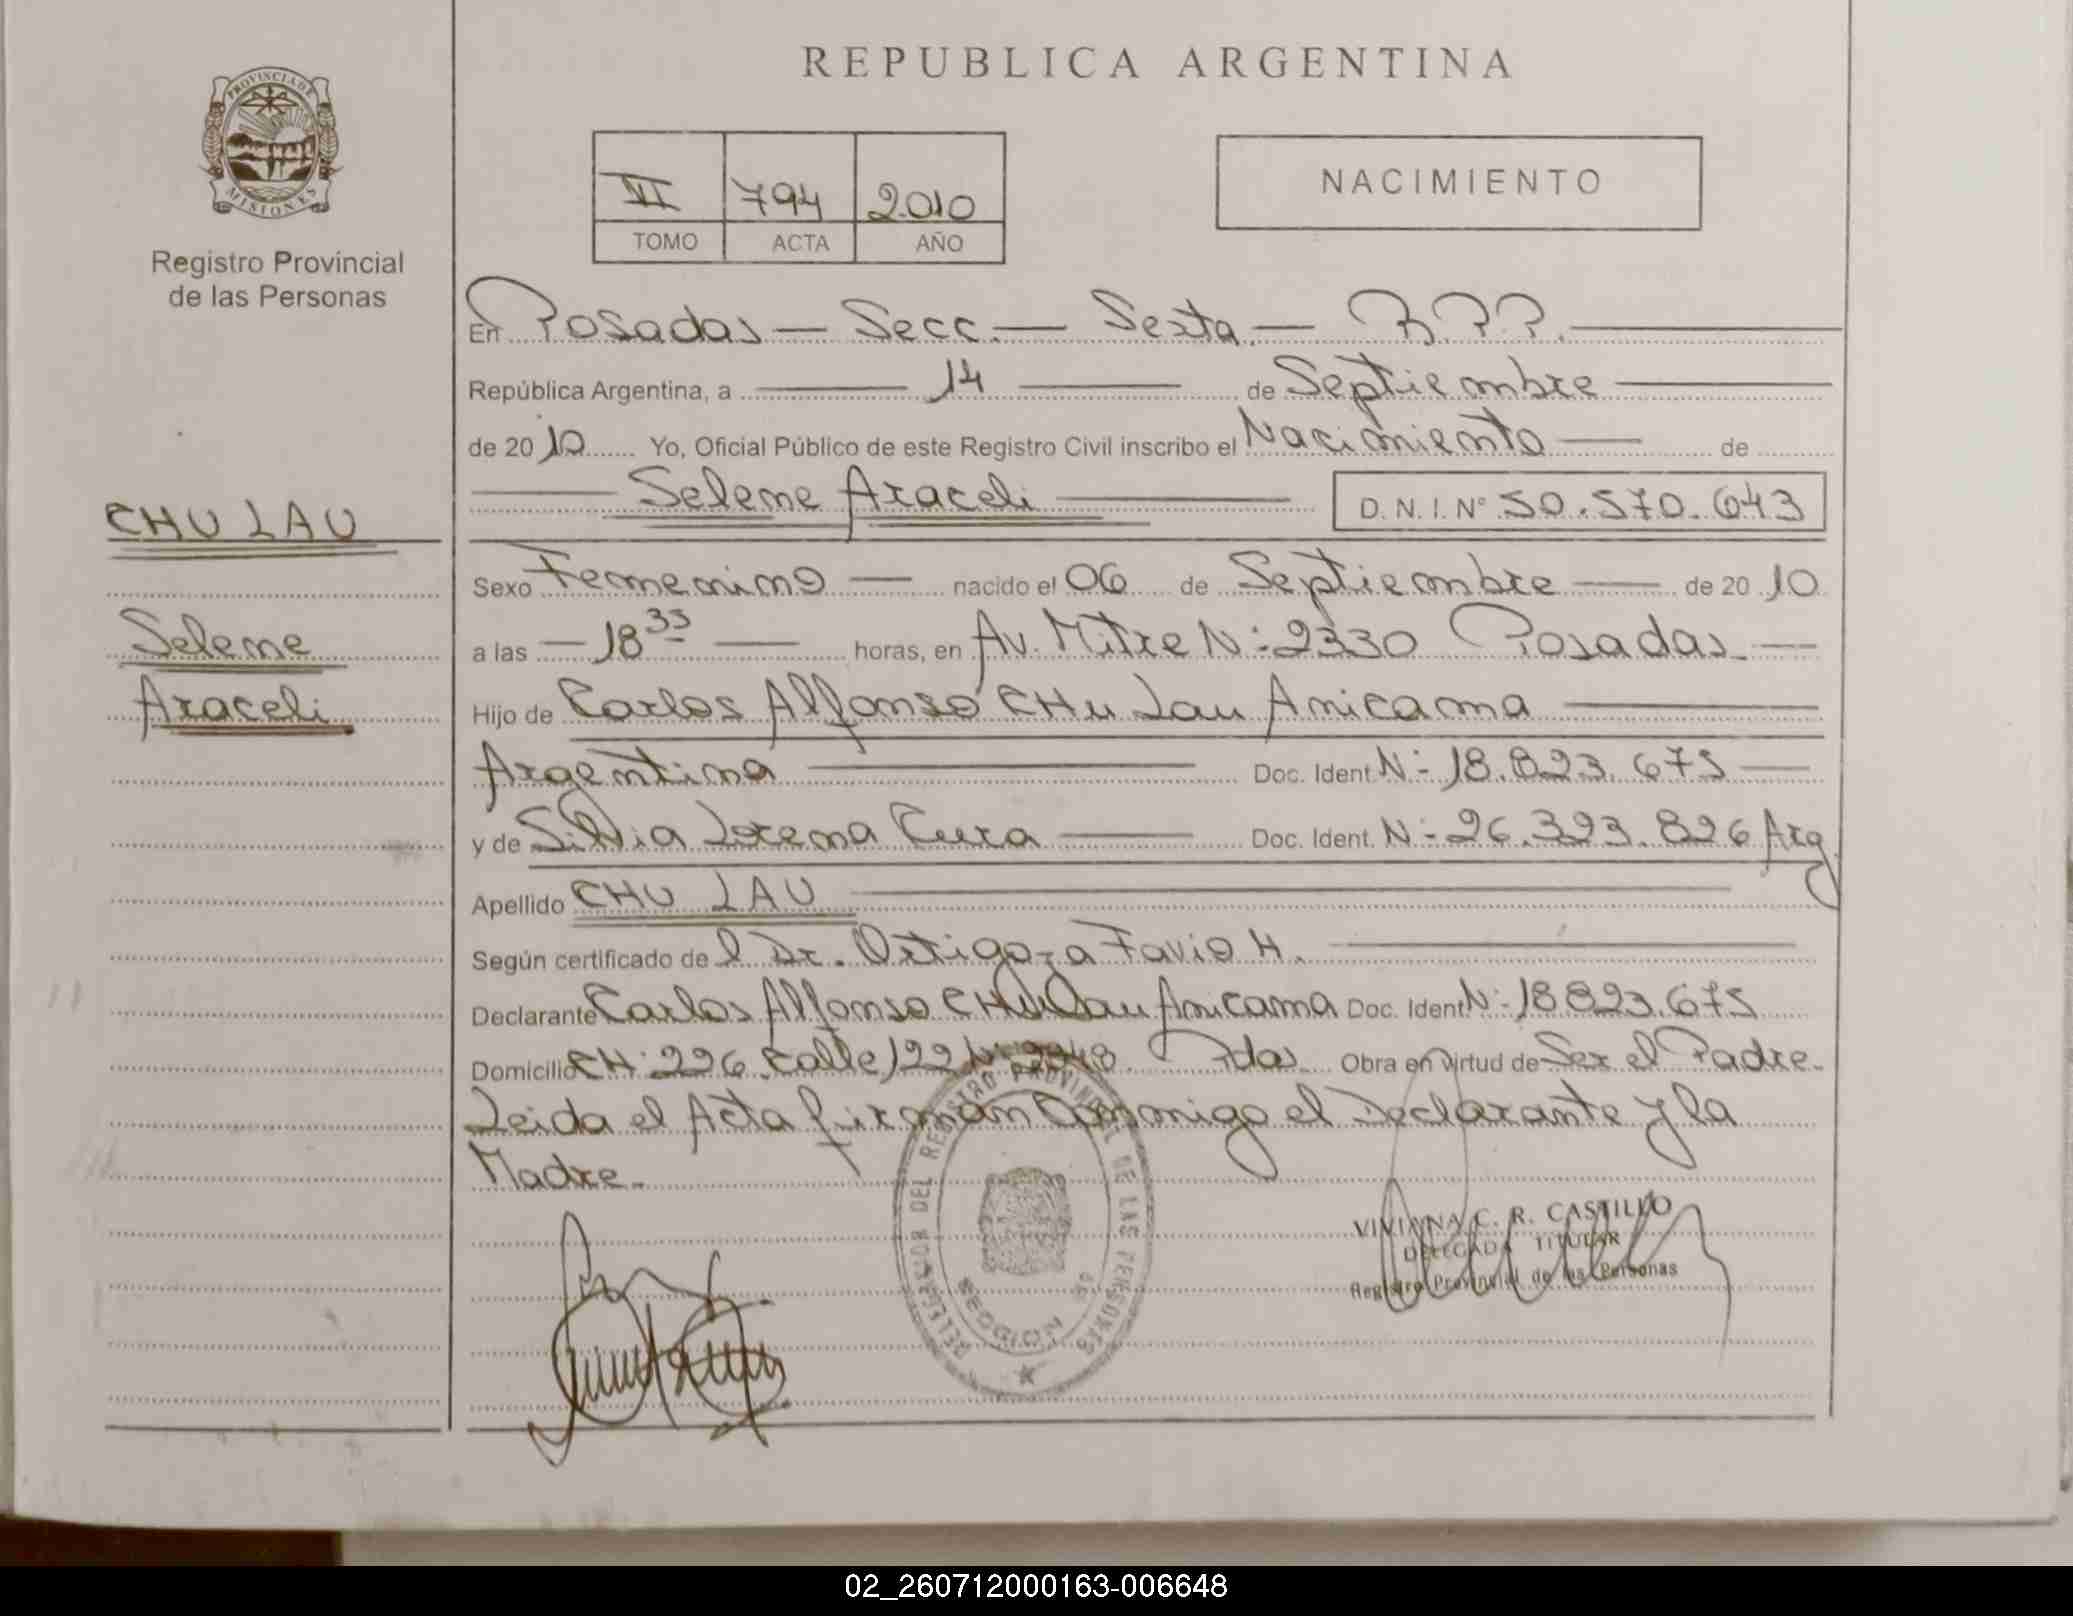 REPUBLICA ARGENTINA
PROVINCIA DE
MISIONES
Registro Provincial
de las Personas
VI 794 2010
TOMO ACTA AÑO
NACIMIENTO
En Posadas — Secc. — Sexta. — R.P.P.
República Argentina, a 14 de Septiembre
de 2010 Yo, Oficial Público de este Registro Civil inscribo el Nacimiento de
Selene Araceli D.N.I. Nº 50.570.643
CHU LAU
Selene
Araceli
Sexo Femenino nacido el 06 de Septiembre de 2010
a las 18 35 horas, en Av. Mitre N:2330 Posadas
Hijo de Carlos Alfonso CHu Lau Anicama
Argentina Doc. Ident. N: 18.823.675
y de Silvia Lorena Cura Doc. Ident. N: 26.323.826 Arg
Apellido CHU LAU
Según certificado del Dr. Ortigoza Favio H.
Declarante Carlos Alfonso CHu Lau Anicama Doc. Ident N: 18823.675
Domicilio CH: 226 Calle 122 N: 2248. Pdas. Obra en virtud de Ser el Padre.
Leida el Acta firman Conmigo el Declarante y la
Madre.
DEL REGISTRO PROVINCIAL DE LAS PERSONAS
SECCION 6º
VIVIANA C. R. CASTILLO
DELEGADA TITULAR
Registro Provincial de las Personas
02_260712000163-006648